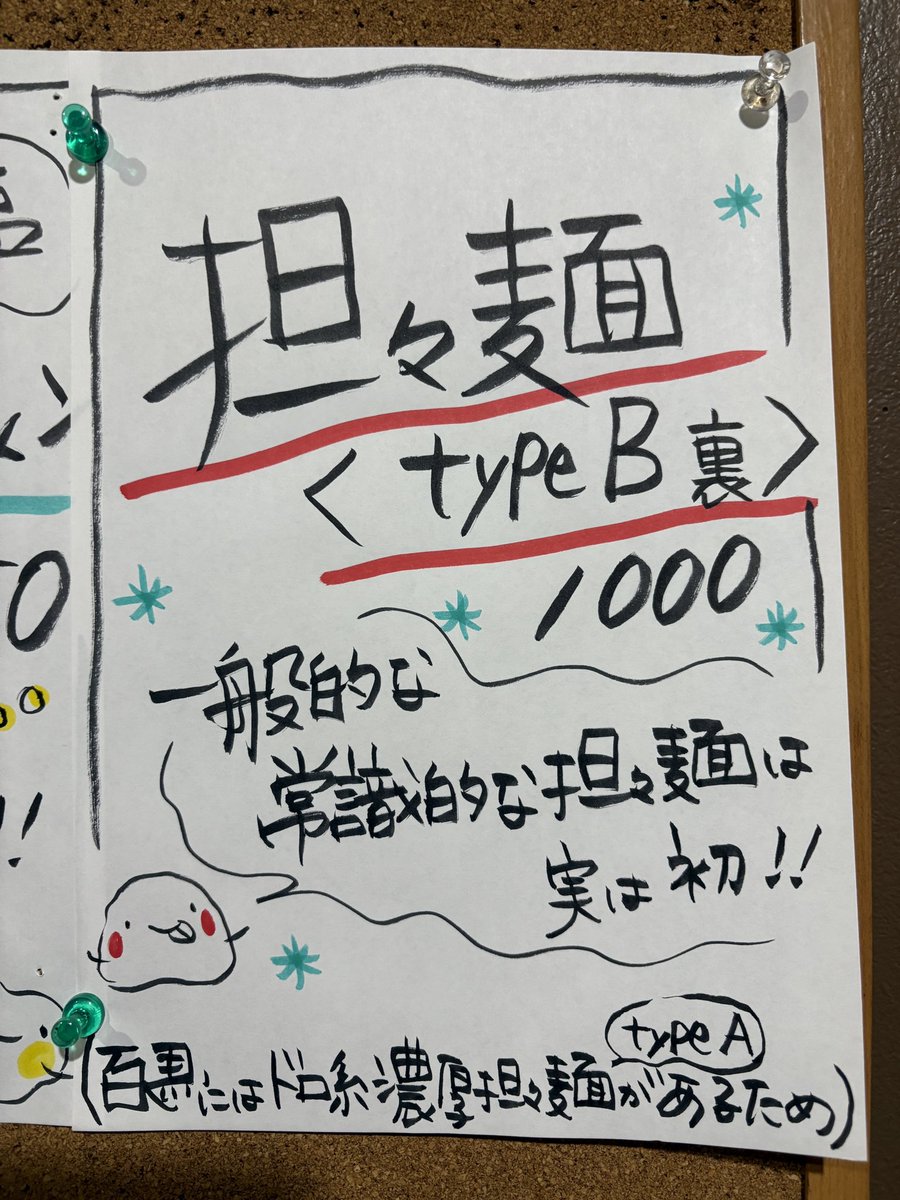 担々麺
<typeB裏>
1000
一般的な
常識的な担々麺は
実は初!!
typeA
(百黒にはドロ系濃厚担々麺があるため)